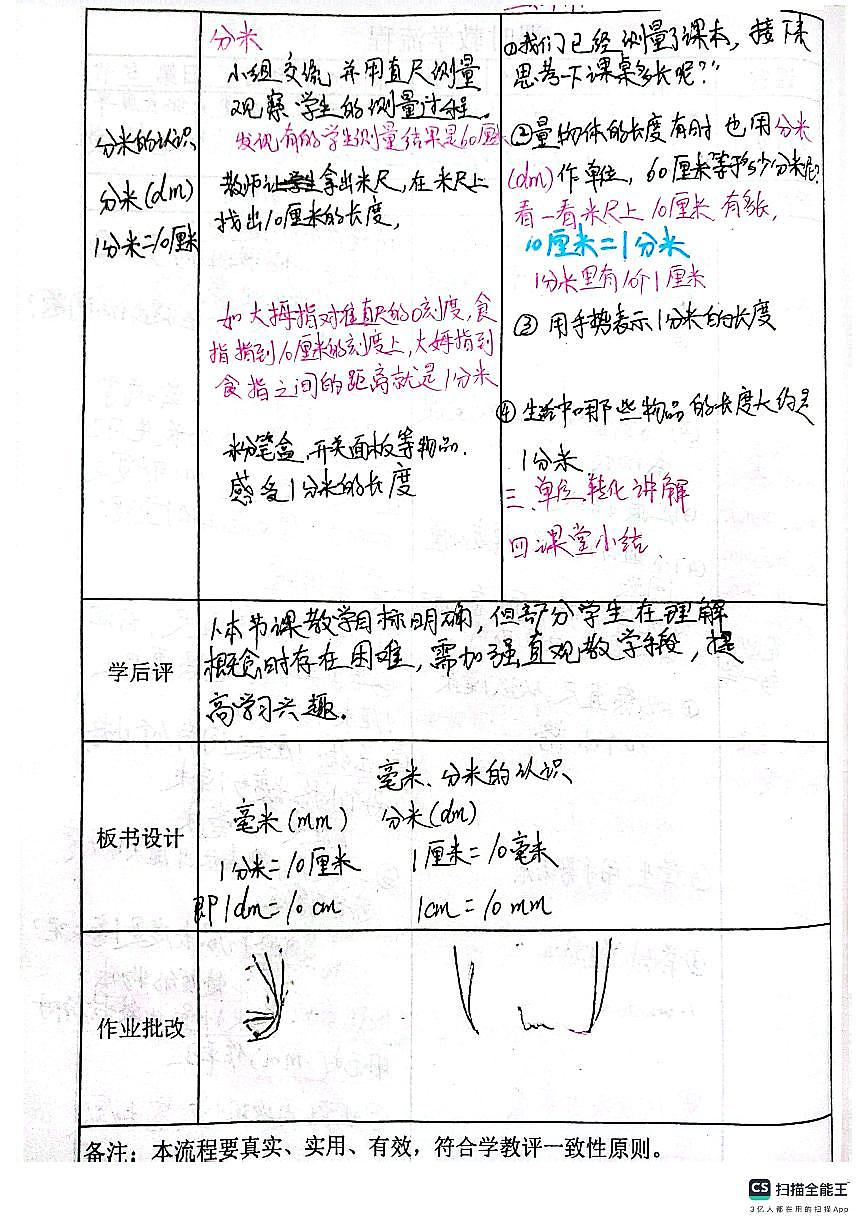 分米的认识
分米(dm)
1分米=10厘米
分米
小组交流 并用直尺测量
观察学生的测量过程。
发现有的学生测量结果是60厘米
教师让学生拿出米尺,在米尺上
找出10厘米的长度,
如大拇指对准直尺的0刻度,食
指指到10厘米的刻度上,大姆指到
食指之间的距离就是1分米
粉笔盒、开关面板等物品.
感受1分米的长度
①我们已经测量了课本,接下来
思考一下课桌多长呢?"
②量物体的长度有时 也用分米
(dm)作单位,60厘米等于多少分米呢?
看一看米尺上 10厘米 有多长,
10厘米=1分米
1分米里有10个1厘米
③ 用手势表示1分米的长度
④生活中哪些物品的长度大约是
1分米
三、单位转化讲解
四 课堂小结.
学后评
1、本节课教学目标明确,但部分学生在理解
概念时存在困难,需加强直观教学手段,提
高学习兴趣.
板书设计
毫米、分米的认识
毫米(mm) 分米(dm)
1分米=10厘米 1厘米=10毫米
即1dm=10cm 1cm=10mm
作业批改
备注:本流程要真实、实用、有效,符合学教评一致性原则。
CS 扫描全能王
3亿人都在用的扫描App